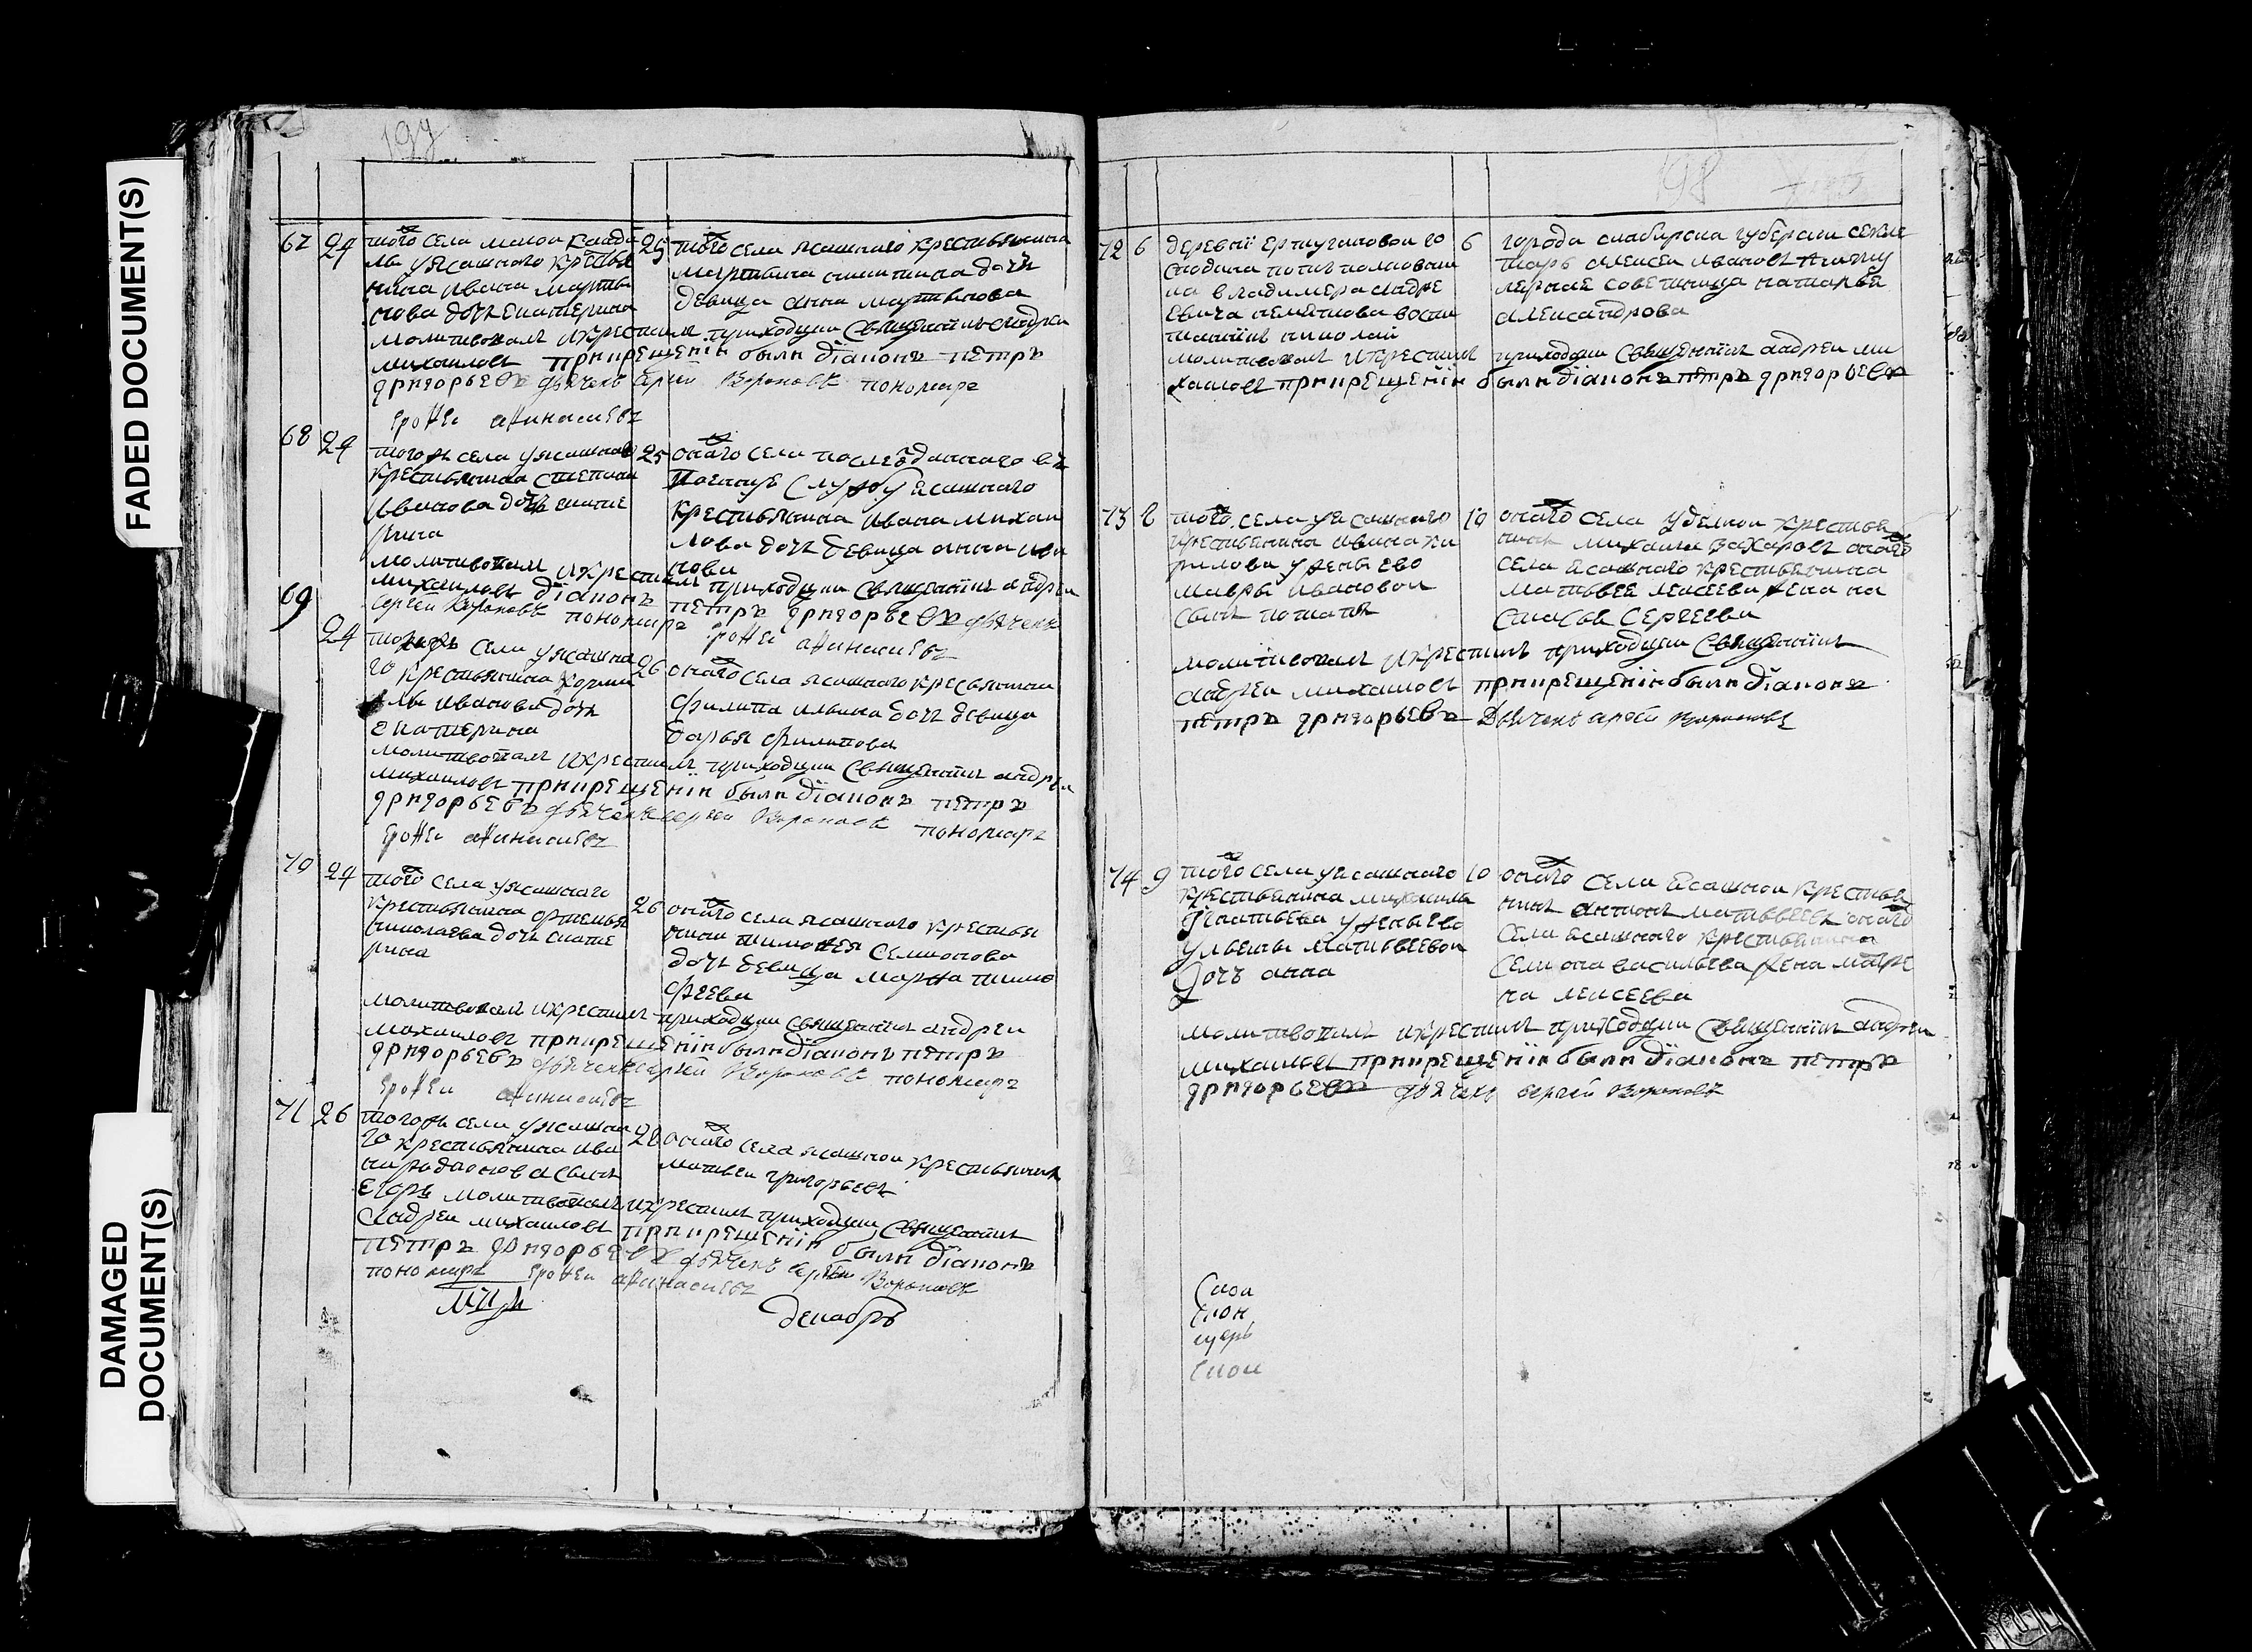 FADED DOCUMENT(S)
DAMAGED DOCUMENT(S)
197
67 24
того села малои канда
лы у ясашнаго крестья
нина ивана марты
нова дочь екатерина
25 того села ясашнаго крестьянина
мартына никитина дочь
девица анна мартынова
молитвовалъ и крестилъ приходцки священникъ андреи
михаиловъ при крещении были дїаконъ петръ
григорьевъ дьячекъ сергей Вороновъ пономарь
ерофеи афанасьевъ
68 24
тогожъ села у ясашнаго
крестьянина степана
иванова дочь екате
рина
25 онаго села
службу ясашнаго
крестьянина ивана михаи
лова дочь девица анна ива
нова
молитвовалъ и крестилъ приходцки священникъ андреи
михаиловъ дїаконъ петръ григорьевъ дьячекъ
сергей Вороновъ пономарь ерофеи афанасьевъ
69 24
тогожъ села у ясашна
го крестьянина
иванова дочь
екатерина
26 онаго села ясашнаго кресьянина
филипа ильина дочь девица
дарья филипова
молитвовалъ и крестилъ приходцки священникъ андреи
михаиловъ при крещении были дїаконъ петръ
григорьевъ дьячекъ сергей Вороновъ пономарь
ерофеи афанасьевъ
70 24
того села у ясашнаго
крестьянина артемья
николаева дочь екате
рина
26 онаго села ясашнаго крестья
нина тимофея семионова
дочь девица марфа тимо
феева
молитвовалъ и крестилъ приходцки священникъ андреи
михаиловъ при крещении были дїаконъ петръ
григорьевъ дьячекъ сергей Вороновъ пономарь
ерофеи афанасьевъ
71 26
тогожъ села у ясашна
го крестьянина ива
на родионова сынъ
егоръ
28 онаго села ясашнои крестьянинъ
матвеи григорьевъ
молитвовалъ и крестилъ приходцки священникъ
андреи михаиловъ при крещении были дїаконъ
петръ григорьевъ дьячекъ сергей Вороновъ
пономарь ерофеи афанасьевъ
декабрь
198
72 6
деревни ертугановои го
сподина потполковни
ка владимера андре
евича
николаи
6 города симбирска губерскои секре
тарь алексеи ивановъ
советница наталья
александрова
молитвовалъ и крестилъ приходцки священникъ андреи ми
хаиловъ при крещении были дїаконъ петръ григорьевъ
73 8
того села у ясашнаго
крестьянина ивана ки
рилова у жены ево
мавры ивановои
сынъ потапъ
10 онаго села уделнои крестья
нинъ михаила захаровъ онаго
села ясашнаго крестьянина
матьвея алексеева жена на
стасья сергеева
молитвовалъ и крестилъ приходцки священникъ
андреи михаиловъ при крещении были дїаконъ
петръ григорьевъ Дьячекъ сергеи Вороновъ
74 9
того села у ясашнаго
крестьянина михаила
игнатьева у жены ево
ульяны матвеевои
дочь анна
10 онаго села ясашнои крестья
нинъ антонъ матвеевъ онаго
села ясашнаго крестьянина
семиона васильева жена матре
на алексеева
молитвовалъ и крестилъ приходцки священникъ андреи
михаиловъ при крещении были дїаконъ петръ
григорьевъ дьячекъ сергеи Вороновъ